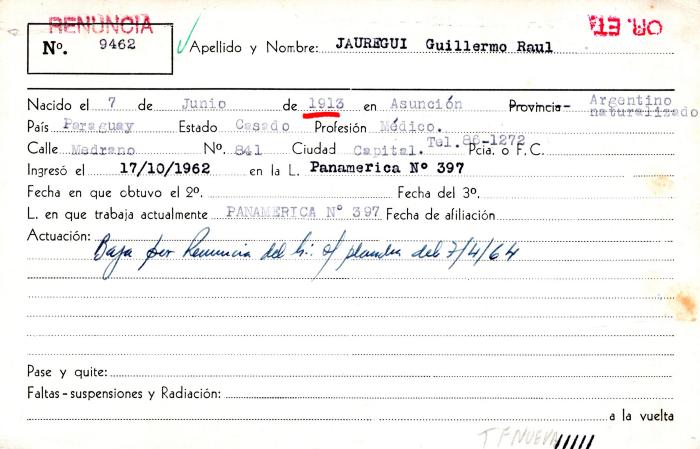 RENUNCIA
OR. ETA
Nº. 9462
Apellido y Nombre: JAUREGUI Guillermo Raul
Nacido el 7 de Junio de 1913 en Asunción Provincia- Argentino
naturalizado
País Paraguay Estado Casado Profesión Médico.
Calle Medrano Nº. 841 Ciudad Capital. Tel. 86-1272 Pcia. o F. C.
Ingresó el 17/10/1962 en la L. Panamerica Nº 397
Fecha en que obtuvo el 2º. Fecha del 3º.
L. en que trabaja actualmente PANAMERICA Nº 397 Fecha de afiliación
Actuación: Baja por Renuncia del h∴ s/ plancha del 7/4/64
Pase y quite:
Faltas-suspensiones y Radiación:
a la vuelta
T F NUEVA